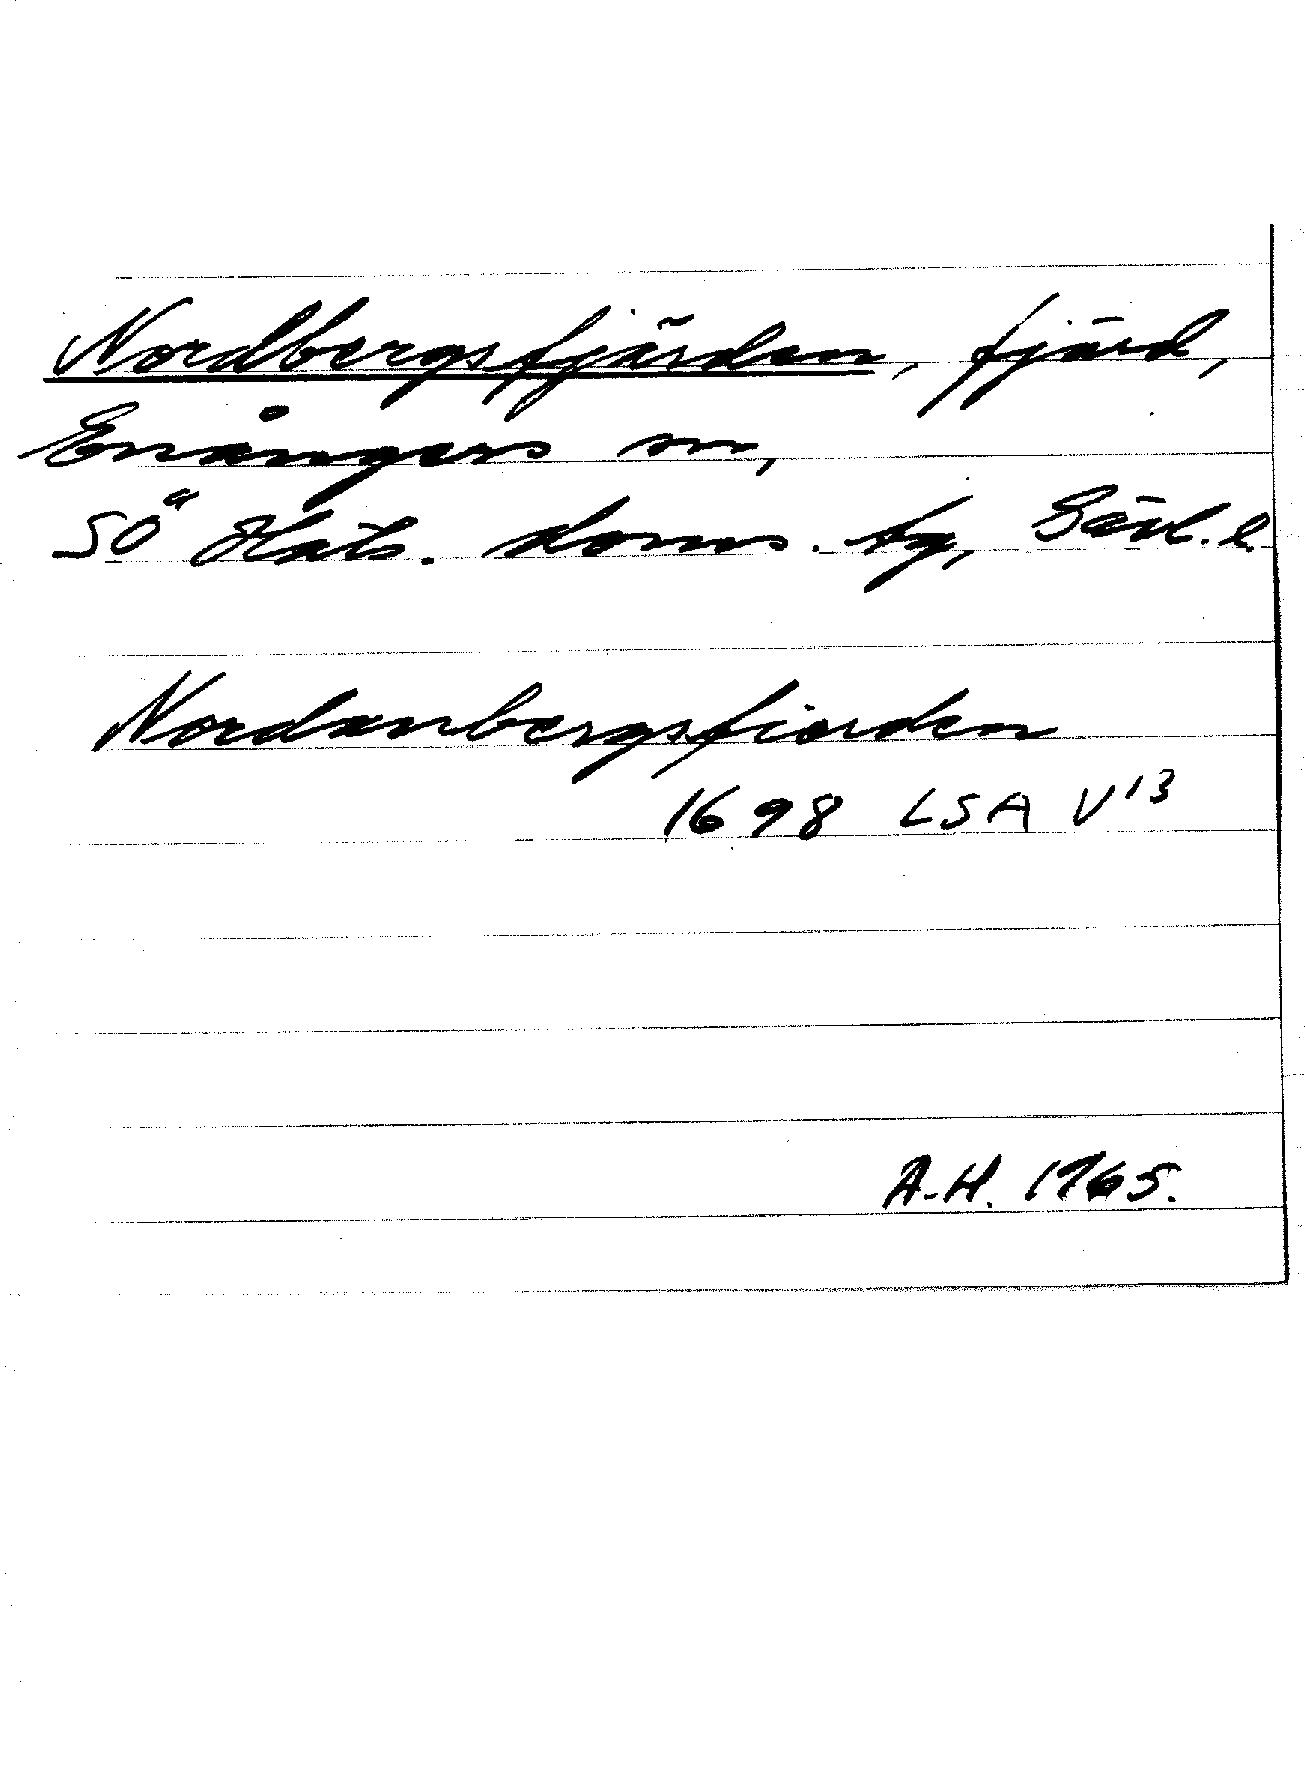 Nordbergsfjärden, fjärd,
Enångers sn,
SÖ Häls. doms. tg, Gävl. l.
Nordanbergsfiorden
1698 LSA V13
A.H. 1965.